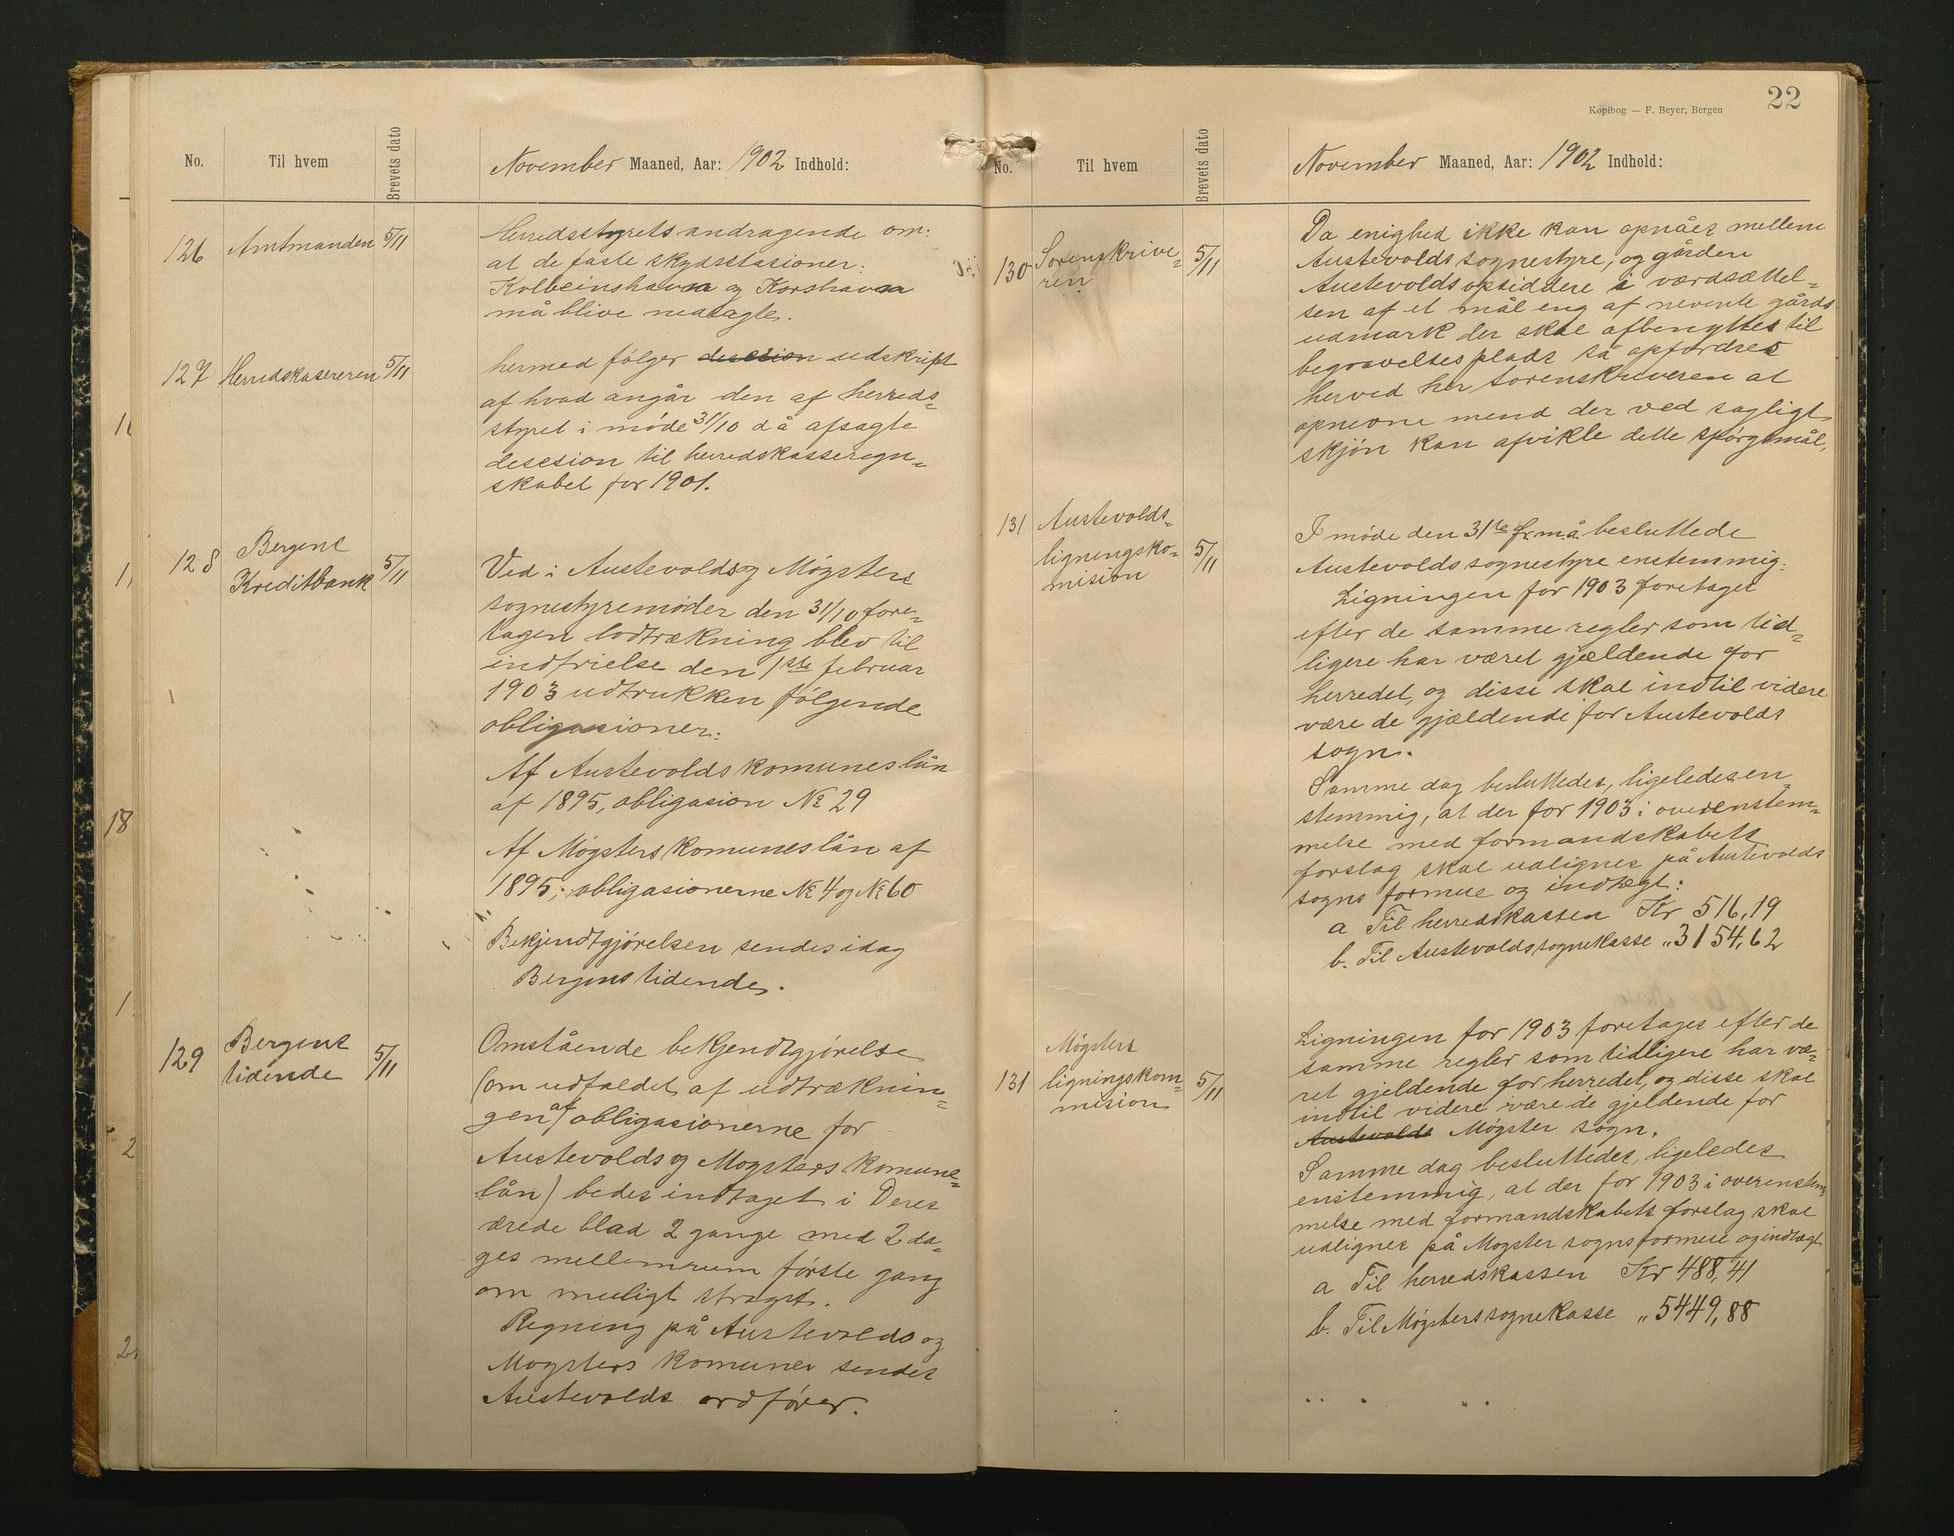 No. Til hvem Brevets dato November Maaned, Aar: 1902 Indhold:
126 Amtmanden 5/11 Herredsstyrets andragende om:
at de faste skydsstasioner:
Kolbeinshavn og Korshavn
må blive nedlagte.
127 Herredskasereren 5/11 hermed følger desesion udskript
af hvad angår den af herreds=
styret i møde 31/10 då afsagte
desesion til herredskasseregn=
skabet for 1901.
128 Bergens
Kreditbank 5/11
Ved i Austevolds og Møgsters
sognestyremøder den 31/10 fore=
tagen lodtrækning blev til
indfrielse den 1ste februar
1903 udtrukken følgende
obligasioner:
Af Austevolds komuneslån
af 1895, obligasion № 29
Af Møgsters komuneslån af
1895, obligasionerne № 4 og № 60
Bekjendtgjørelsen sendes idag
Bergenstidende.
129 Bergens
tidende 5/11
Omstående bekjendtgjørelse
(om udfaldet af udtræknin=
gen af obligasionerne for
Austevolds og Møgsters komune=
lån) bedes indtaget i Deres
ærede blad 2 gange med 2 da=
ges mellemrum første gang
om muligt straget.
Regning på Austevolds og
Mogsters komuner sendes
Austevolds ordfører.
Kopibog — F. Beyer, Bergen 22
No. Til hvem Brevets dato November Maaned, Aar: 1902 Indhold:
130 Sorenskrive=
ren 5/11
Da enighed ikke kan opnåes mellem
Austevolds sognestyre, og gården
Austevolds opsiddere i værdsættel=
sen af et mål eng af nevente gårds
udmark der skal afbenyttes til
begravelsesplads så opfordres
herved hr sorenskriveren at
opnevne mend der ved sagligt
skjøn kan afvikle dette spørgsmål.
131 Austevolds
ligningsko=
mision 5/11
I møde den 31te f.m.å. besluttede
Austevolds sognestyre enstemmig:
Ligningen for 1903 foretages
efter de samme regler som tid=
ligere har været gjældende for
herredet, og disse skal indtil videre
være de gjældende for Austevolds
sogn.
Samme dag besluttedes, ligeledes en
stemmig, at der for 1903 i overenstem=
melse med formandskabets
forslag skal udlignes på Austevolds
sogns formue og indtægt:
a Til herredskassen Kr 516,19
b. Til Austevolds sognekasse „ 3154,62
131 Møgsters
ligningskom=
mision 5/11
Ligningen for 1903 foretages efter de
samme regler som tidligere har væ=
ret gjeldende for herredet, og disse skal
indtil videre være de gjeldende for
Austevolds Møgster sogn.
Samme dag besluttedes, ligeledes
enstemmig, at der for 1903 i overenstem
melse med formandskabets forslag skal
udlignes på Møgster sogns formue og indtægt
a Til herredskassen Kr 488,41
b. Til Møgsters sognekasse „ 5449,88